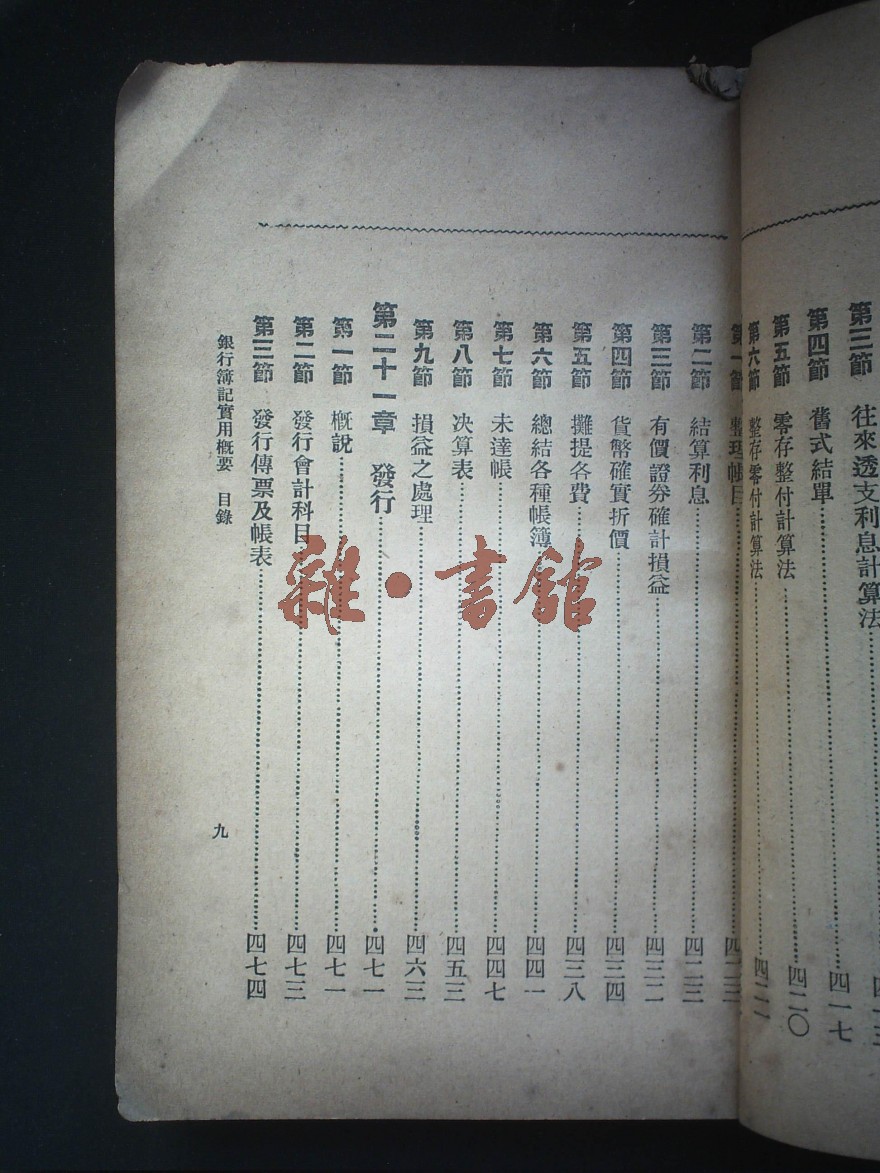 第三節　往來透支利息計算法
第四節　舊式結單………四一七
第五節　零存整付計算法………四二〇
第六節　整存零付計算法………四二一
第一節　整理帳目………四二三
第二節　結算利息………四二三
第三節　有價證券確計損益………四三二
第四節　貨幣確實折價………四三四
第五節　攤提各費………四三八
第六節　總結各種帳簿………四四一
第七節　未達帳………四四七
第八節　決算表………四五三
第九節　損益之處理………四六三
第二十一章　發行………四七一
第一節　概說………四七一
第二節　發行會計科目………四七三
第三節　發行傳票及帳表………四七四
銀行簿記實用概要　目錄
九
雜·書館